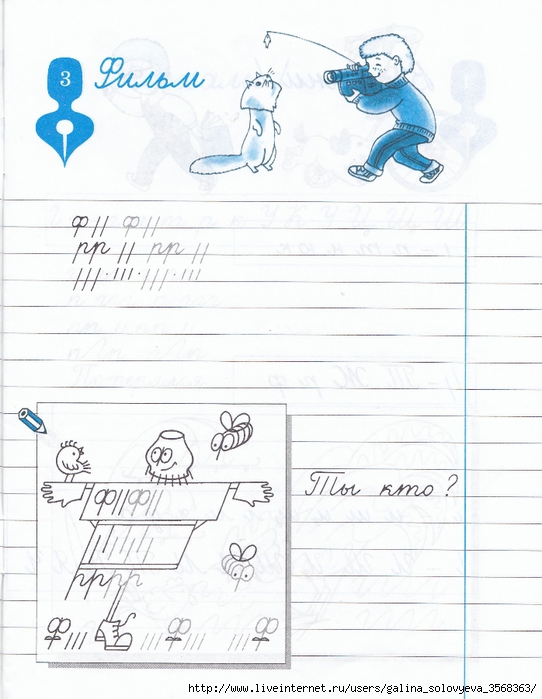 3 Фильм
ф // ф //
рр // рр //
///·///·///·///
Ты кто?
ф//ф//
рррр
ф/// ///ф ///ф
http://www.liveinternet.ru/users/galina_solovyeva_3568363/